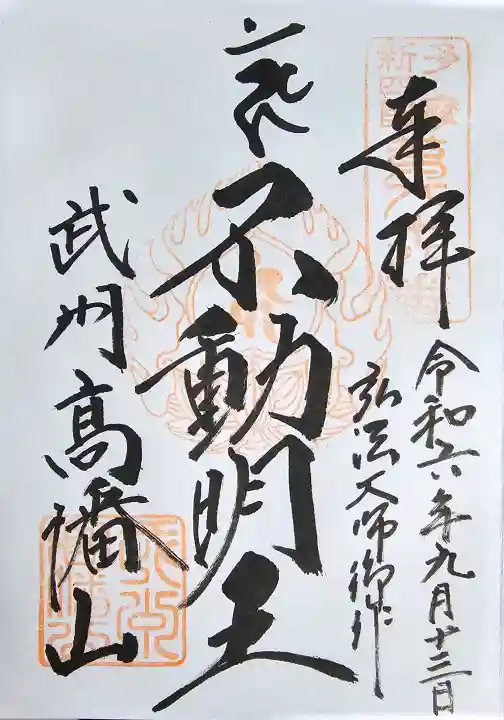 奉拝
令和六年九月十三日
弘法大師御作
不動明王
武州高幡山
多摩
新四国